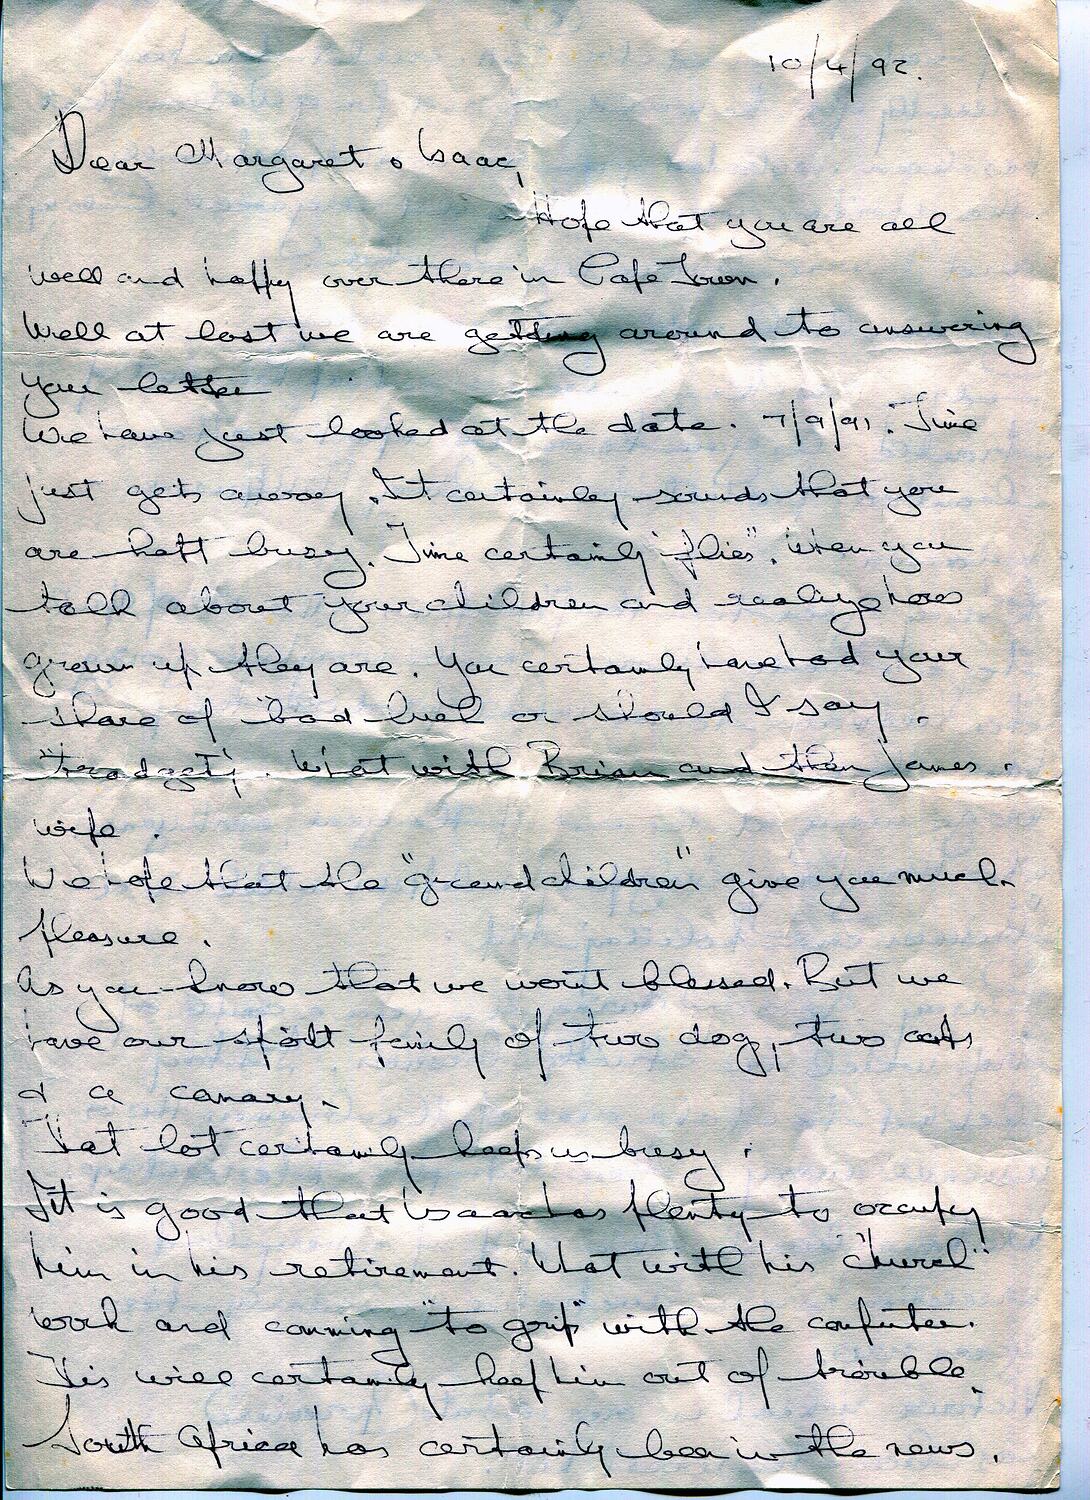 10/4/92.
Dear Margaret & Isaac,
Hope that you are all
well and happy over there in Cape Town.
Well at last we are getting around to answering
your letter
We have just looked at the date. 7/9/91. Time
just gets away. It certainly sounds that you
are kept busy. Time certainly "flies". When you
talk about your children and realize how
grown up they are. You certainly have had your
share of "bad luck or should I say.
"tradgety. What with Brian and then James.
wife.
We hope that the "grandchildren" give you much.
pleasure.
As you know that we won't blessed. But we
have our spoilt family of two dog, two cats
& a canary.
That lot certainly keeps us busy.
It is good that Isaac has plenty to occupy
him in his retirement. What with his "church"
work and comming "to grips" with the computer.
This will certainly keep him out of trouble.
South Africa has certainly been in the news.